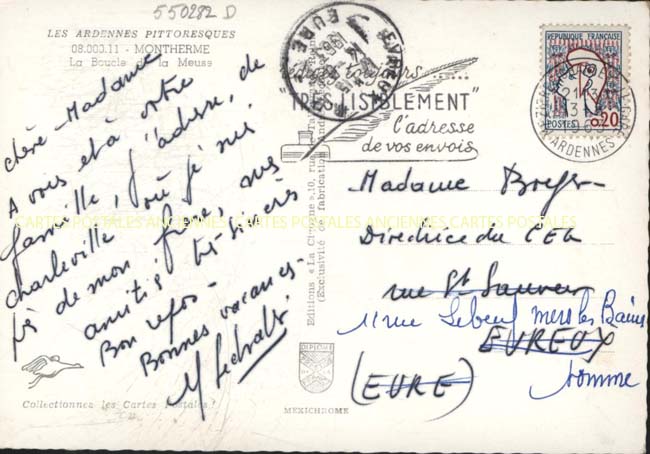 550282 D
LES ARDENNES PITTORESQUES
08.000.11 - MONTHERME
La Boucle de la Meuse
Chère Madame
A vous et à votre
famille, j'adresse, de
Charleville où je suis
près de mon frère, mes
amitiés très sincères
Bon repos -
Bonnes vacances -
Collectionnez les Cartes Postales !
EVREUX
EURE
rédigez toujours ......
"TRES LISIBLEMENT"
l'adresse
de vos envois
REPUBLIQUE FRANÇAISE
POSTES 0,20
ARDENNES
Editions « La Cigogne »
(Exclusivité de fabrication)
DIPLOME
MEXICHROME
Madame
Directrice du CEG
rue St Sauveur
11 rue Lebeuf Mers les Bains
EVREUX
(EURE)
Somme
CARTES POSTALES ANCIENNES CARTES POSTALES ANCIENNES CARTES POSTALES